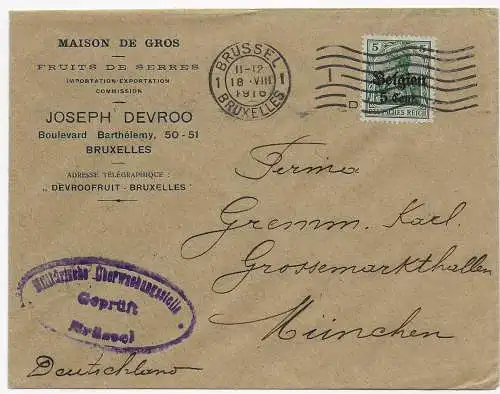 MAISON DE GROS
FRUITS DE SERRES
IMPORTATION-EXPORTATION
COMMISSION
JOSEPH DEVROO
Boulevard Barthélemy, 50-51
BRUXELLES
ADRESSE TÉLÉGRAPHIQUE :
„ DEVROOFRUIT - BRUXELLES "
BRÜSSEL
11-12
1 18 VIII 1
1916
BRUXELLES
5
Belgien
5 Cent.
DEUTSCHES REICH
Firma
Gremm. Karl.
Grossemarkthallen
München
Deutschland
Militärische Überwachungsstelle
Geprüft
Brüssel